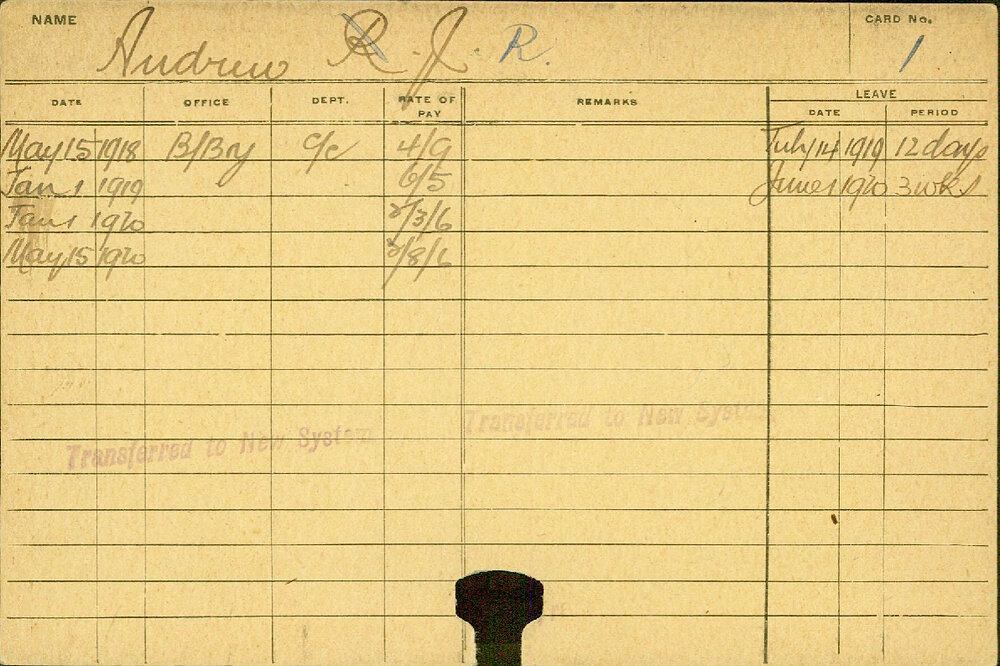 NAME Andrew R. J. R. CARD No. 1
DATE OFFICE DEPT. RATE OF PAY REMARKS LEAVE DATE PERIOD
May 15 1918 B/Bry C/c 4/9 July 14 1919 12 days
Jan 1 1919 6/5 June 1 1920 3 wks
Jan 1 1920 2/3/6
May 15 1920 2/8/6
Transferred to New System Transferred to New System